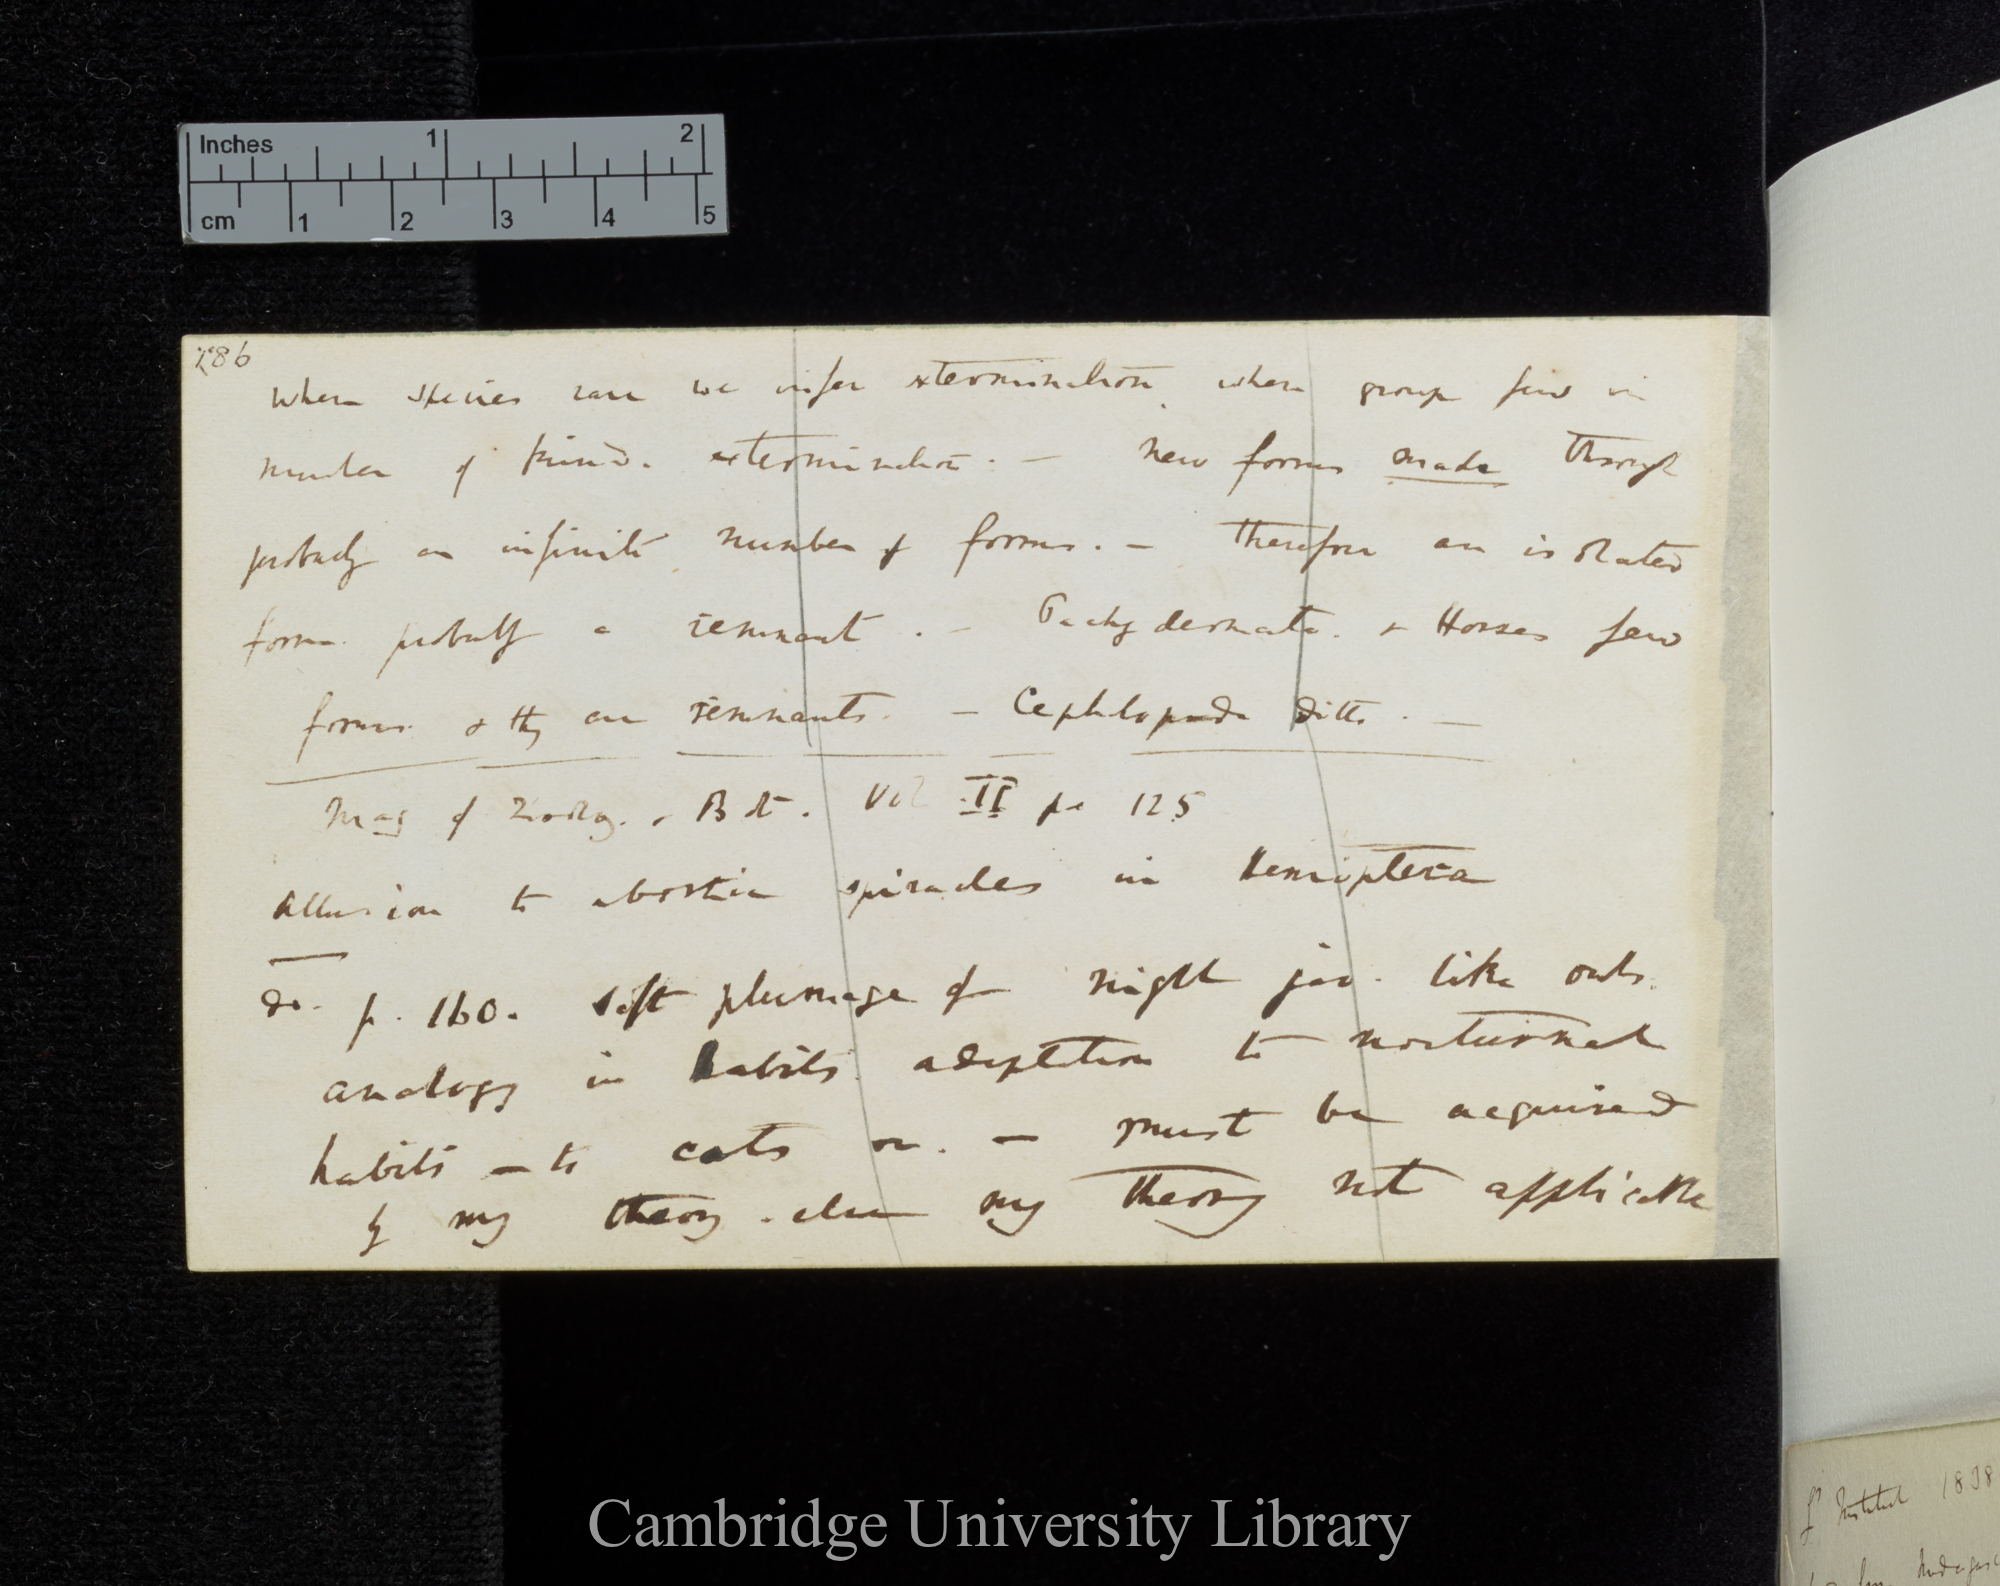 Inches 1 2
cm 1 2 3 4 5
186
When species rare we infer extermination, when group few in
number of kinds. extermination. — New forms made through
probably an infinite number of forms. — therefore an isolated
form. probably a remnant. — Pachydermata. & Horses few
forms. & they are remnants. — Cephalopoda ditto. —
Mag of Zoolog. & Bot. Vol II p. 125
allusion to abortive spiracles in hemiptera
do. p. 160. soft plumage of night jar. like owls.
analogy in habits. adaptation to nocturnal
habits — to cats — must be acquired
by my theory. else my theory not applicable
Cambridge University Library
1838